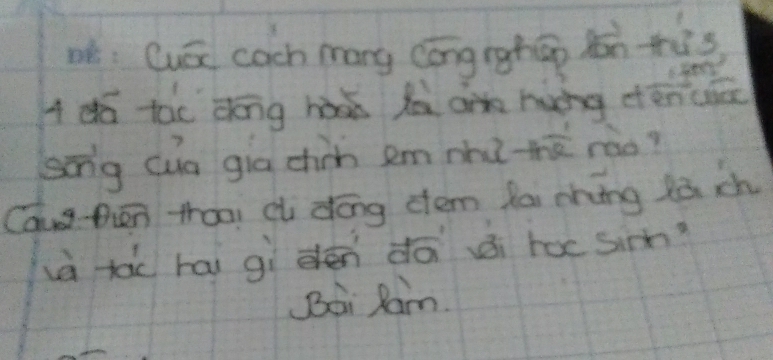 Đề: Cuộc cách mạng công nghiệp lần thứ 3,
4 đã tác động hoặc là ảnh hưởng đến cuộc
sống của gia đình em như thế nào?
Câu 2: Điện thoại di động đem lại những lợi ích
và tác hại gì đến đối với học sinh?
Bài làm.